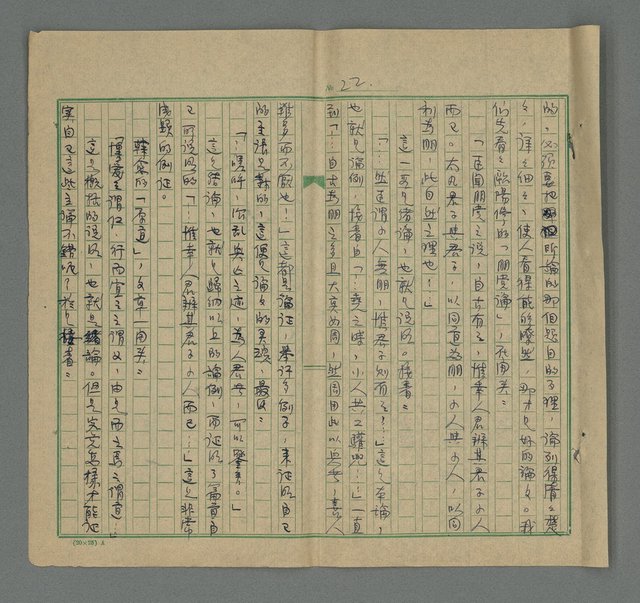 No 22.
的，必須要把所論的那個題目的道理，論列得清清楚
文，詳詳細細，使人看得能夠瞭然，那才是好的論文。我
們先看看歐陽修的「朋黨論」，在開头：
「臣聞朋黨之說，自古有之，惟幸人君辨其君子小人
而已。大凡君子與君子，以同道為朋，小人與小人，以同
利為朋，此自然之理也！」
這一段是緒論，也就是說明。接着：
「…然臣謂小人無朋，惟君子則有之！…」這是本論，
也就是論例，接着自「…堯之時，小人共工驩兜…」一直
到「…自古為朋之多且大莫如周，然周用此以興者，善人
雖多而不厭也！…」這都是論証，舉許多例子，來証明自己
的主張是對的，這便是論文的異議，最後：
「…嗟呼，治亂興亡之迹，為人君者，可以鑒矣。」
這是結論，也就是歸納以上的論例，而証明了篇首自
己所說的「…惟幸人君辨其君子小人而已…」這是非常
明顯的例証。
韓愈的「原道」，文章一開头：
「博愛之謂仁，行而宜之之謂义，由是而之焉之謂道…」
這是概括的說明，也就是緒論。但是究竟怎樣才能証
実自己這些主張不錯呢？於是接着：
(20×25) A